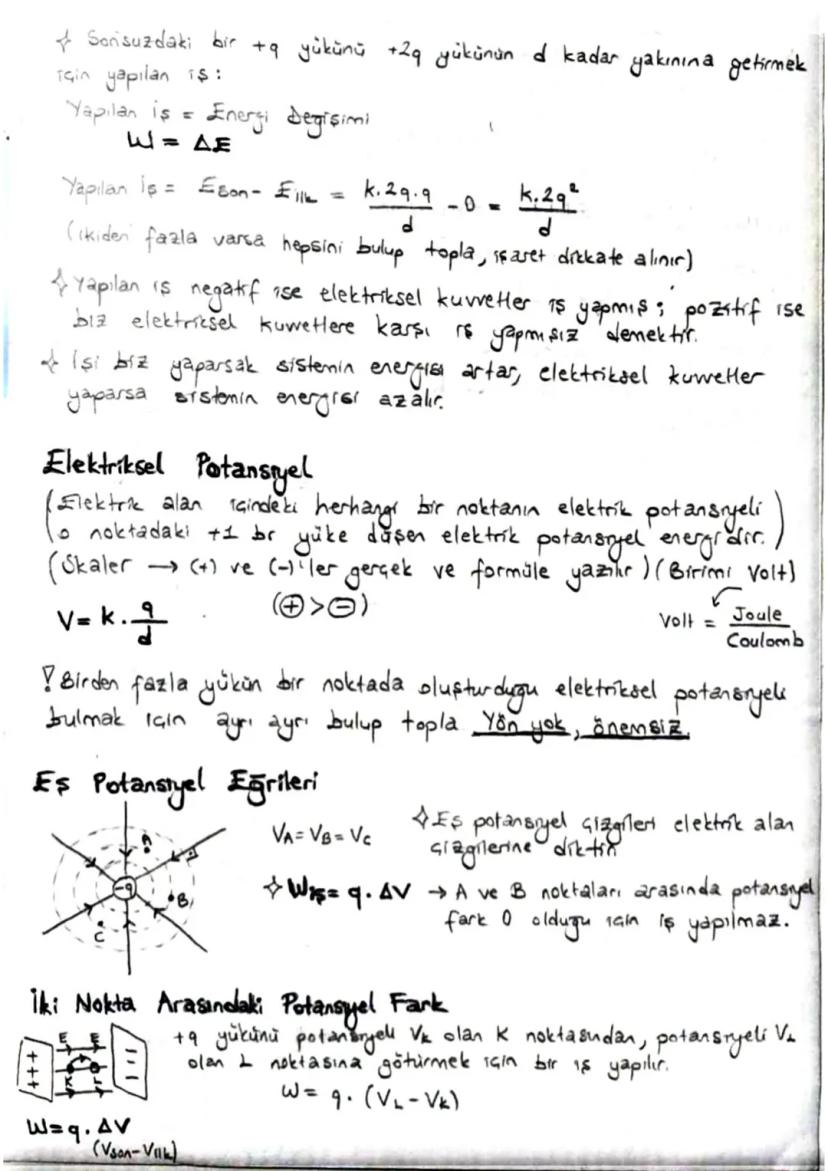 ✧ Sonsuzdaki bir +q yükünü +2q yükünün d kadar yakınına getirmek
için yapılan iş:
Yapılan iş = Enerji Değişimi
W = ΔE
Yapılan iş = Eson - Eilk = k.2q.q/d - 0 = k.2q²/d
(ikiden fazla varsa hepsini bulup topla, işaret dikkate alınır)
✧ Yapılan iş negatif ise elektriksel kuvvetler iş yapmış; pozitif ise
biz elektriksel kuvvetlere karşı iş yapmışız demektir.
✧ İşi biz yaparsak sistemin enerjisi artar, elektriksel kuvvetler
yaparsa sistemin enerjisi azalır.
Elektriksel Potansiyel
(Elektrik alan içindeki herhangi bir noktanın elektrik potansiyeli
o noktadaki +1 br yüke düşen elektrik potansiyel enerjidir.)
(Skaler → (+) ve (-)'ler gerçek ve formüle yazılır) (Birimi Volt)
V = k . q/d
(⊕>⊖)
Volt = Joule/Coulomb
! Birden fazla yükün bir noktada oluşturduğu elektriksel potansiyeli
bulmak için ayrı ayrı bulup topla Yön yok, önemsiz.
Eş Potansiyel Eğrileri
A
-q
B
C
VA = VB = VC
✧ Eş potansiyel çizgileri elektrik alan
çizgilerine diktir
✧ Wiş = q. ΔV → A ve B noktaları arasında potansiyel
fark 0 olduğu için iş yapılmaz.
İki Nokta Arasındaki Potansiyel Fark
E E
+ + +
K L
- - -
+q yükünü potansiyeli VK olan K noktasından, potansiyeli VL
olan L noktasına götürmek için bir iş yapılır.
W = q. (VL - VK)
W = q. ΔV
(Vson - Vilk)